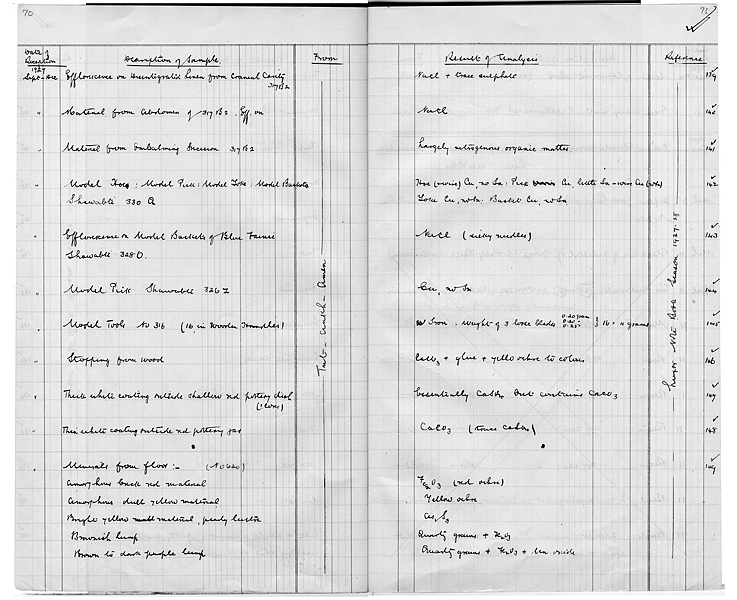 70
Date of Reception
Description of Sample
From
1927
Sept-Dec
Efflorescence on Disintegrated linen from Cranial Cavity
317 B2
" Material from abdomen of 317 B2. Eff. on
" Material from Embalming Incision 317 B2
" Model Hoe : Model Pick : Model Yoke : Model Baskets
Shawabti 330 Q
" Efflorescence on Model Baskets of Blue Faience
Shawabti 328 O.
" Model Pick Shawabti 326 Z
" Model Tools No 316 (16 in wooden handles)
" Stopping from wood
" Thick white coating outside shallow red pottery dish
" Thin white coating outside red pottery jar
" Minerals from floor :- (No 620)
Amorphous brick red material
Amorphous dull yellow material
Bright yellow matt material, pearly lustre
Brownish lump
Brown to dark purple lump
Tut-ankh-Amen
71
Result of Analysis
Reference
NaCl + trace sulphate
139
NaCl
140
Largely nitrogenous organic matter.
141
Hoe Cu, no Sn: Pick Cu, little Sn - wire Cu
142
Yoke Cu, no Sn. Basket Cu, no Sn
NaCl (silky needles)
143
Cu, no Sn
144
Iron : weight of 3 loose blades } 16 = 4 grams
145
CaCO3 + glue + yellow ochre to colour
146
Essentially CaSO4 but contains CaCO3
147
CaCO3 (trace CaSO4)
148
149
Fe2O3 (red ochre)
Yellow ochre
As2S3
Quartz grains + Fe2O3
Quartz grains + Fe2O3 + Mn oxide
Luxor Note Book Season 1927-28